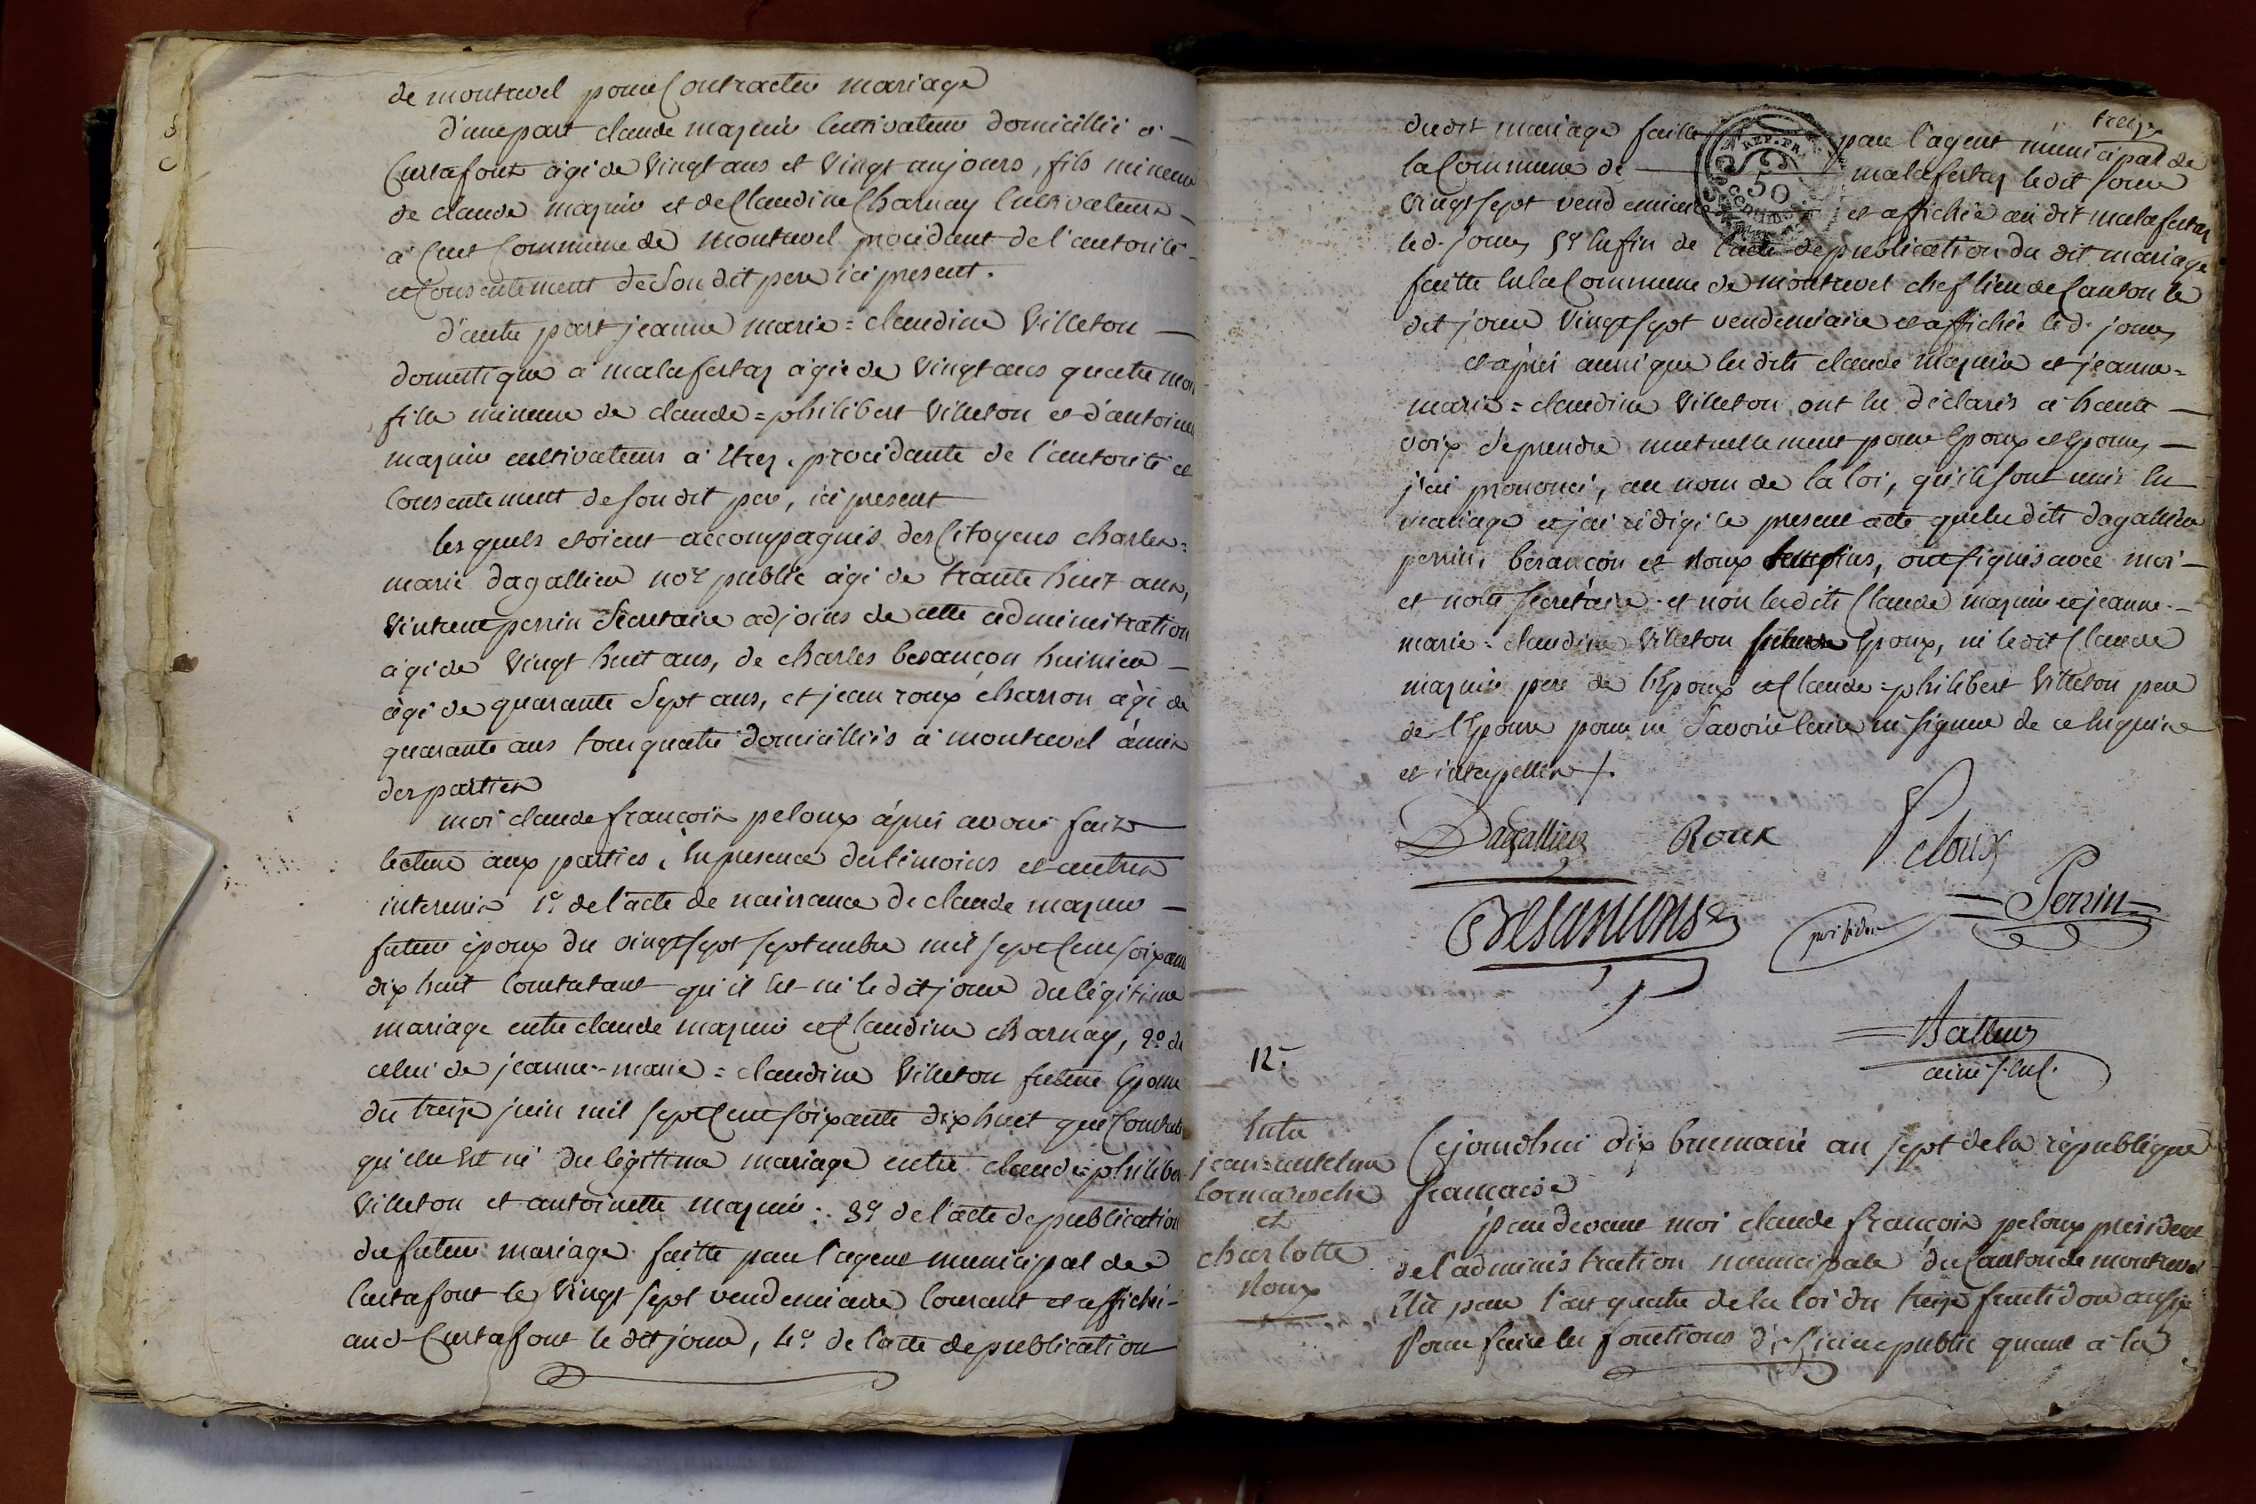 de montrevel pour Contracter mariage
d'une part claude mazuir Cultivateur domicillié a
Curtafont agé de vingt ans et vingt un jours, fils mineur
de claude mazuir et de Claudine Charnay Cultivateurs
à Cuet Commune de Montrevel procédant de l'autorité
et Consentement de Son dit pere ici present.
d'autre part jeanne marie = claudine Villeton
domestique a malafretaz agée de Vingt ans quatre mois
fille mineure de claude = philibert Villeton et d'antoinette
mazuir cultivateurs a Etrez. procédante de l'autorité et
Consentement de son dit pere, ici present
les quels etoient accompagnés des Citoyens charles =
marie dagallier nore public agé de trante huit ans,
Vintent perrin Secretaire adjoint de cette administration
agé de vingt huit ans, de charles besançon huissier
agé de quarante Sept ans, et jean roux charron agé de
quarante ans tous quatre domicilliés a montrevel amis
des parties
moi claude françois peloux après avoir fait
lecture aux parties, En presence des témoins et autres
intervenir 1o. de l'acte de naissance de claude mazuir
futur époux du vingt sept septembre mil sept Cent soixante
dix huit Constatant qu'il Est né le dit jour du légitime
mariage entre claude mazuir et Claudine charnay, 2o. de
celui de jeanne-marie = claudine Villeton future Epouse
du treize juin mil sept Cent soixante dix huit qui Constate
qu'elle Est né du légitime mariage entre claude = philibert
Villeton et antoinette mazuir. 3o. de l'acte de publication
du futur mariage faitte par l'agent municipal de
Curtafont le Vingt sept vendemiaire Courant et affiché
aud. Curtafont le dit jour, 4o. de l'acte de publication
treize
du dit mariage faitte par l'agent municipal de
la Commune de malafretaz ledit jour
vingt sept vendemiaire et affichée au dit malafretaz
led. jour, 5o. Enfin de l'acte de publication du dit mariage
faitte En la Commune de montrevel chef lieu de Canton le
dit jour Vingt sept vendemiaire et affichée led. jour,
et après aussi que les dits claude mazuir et jeanne =
marie = claudine Villeton ont Eu déclarés a haute
voix de prendre mutuellement pour Epoux et Epouse,
j'ai prononcé, au nom de la loi, qu'ils sont unis En
mariage et j'ai rédigé le present acte que les dits dagallier
perrin, besançon et Roux temoins, ont signés avec moi
et notre secretaire. et non les dits Claude mazuir et jeanne.
marie = claudine Villeton futurs Epoux, ni le dit Claude
mazuir pere de l'Epoux et Claude = philibert Villeton pere
de l'Epouse pour ne Savoir Ecrire ni signer de ce Enquis
et interpellés /.
REP. FRA.
50
Dagallier Roux Peloux
president
Perrin
Besançons
12e
Entre
jean = antelme
et
charlotte
Roux
Cejourd'hui dix brumaire an sept de la république
française
pardevant moi claude françois peloux président
de l'administration municipale du Canton de montrevel
Elu par l'art quatre de la loi du treize fructidor an six
Pour faire les fonctions d'officier public quant à la